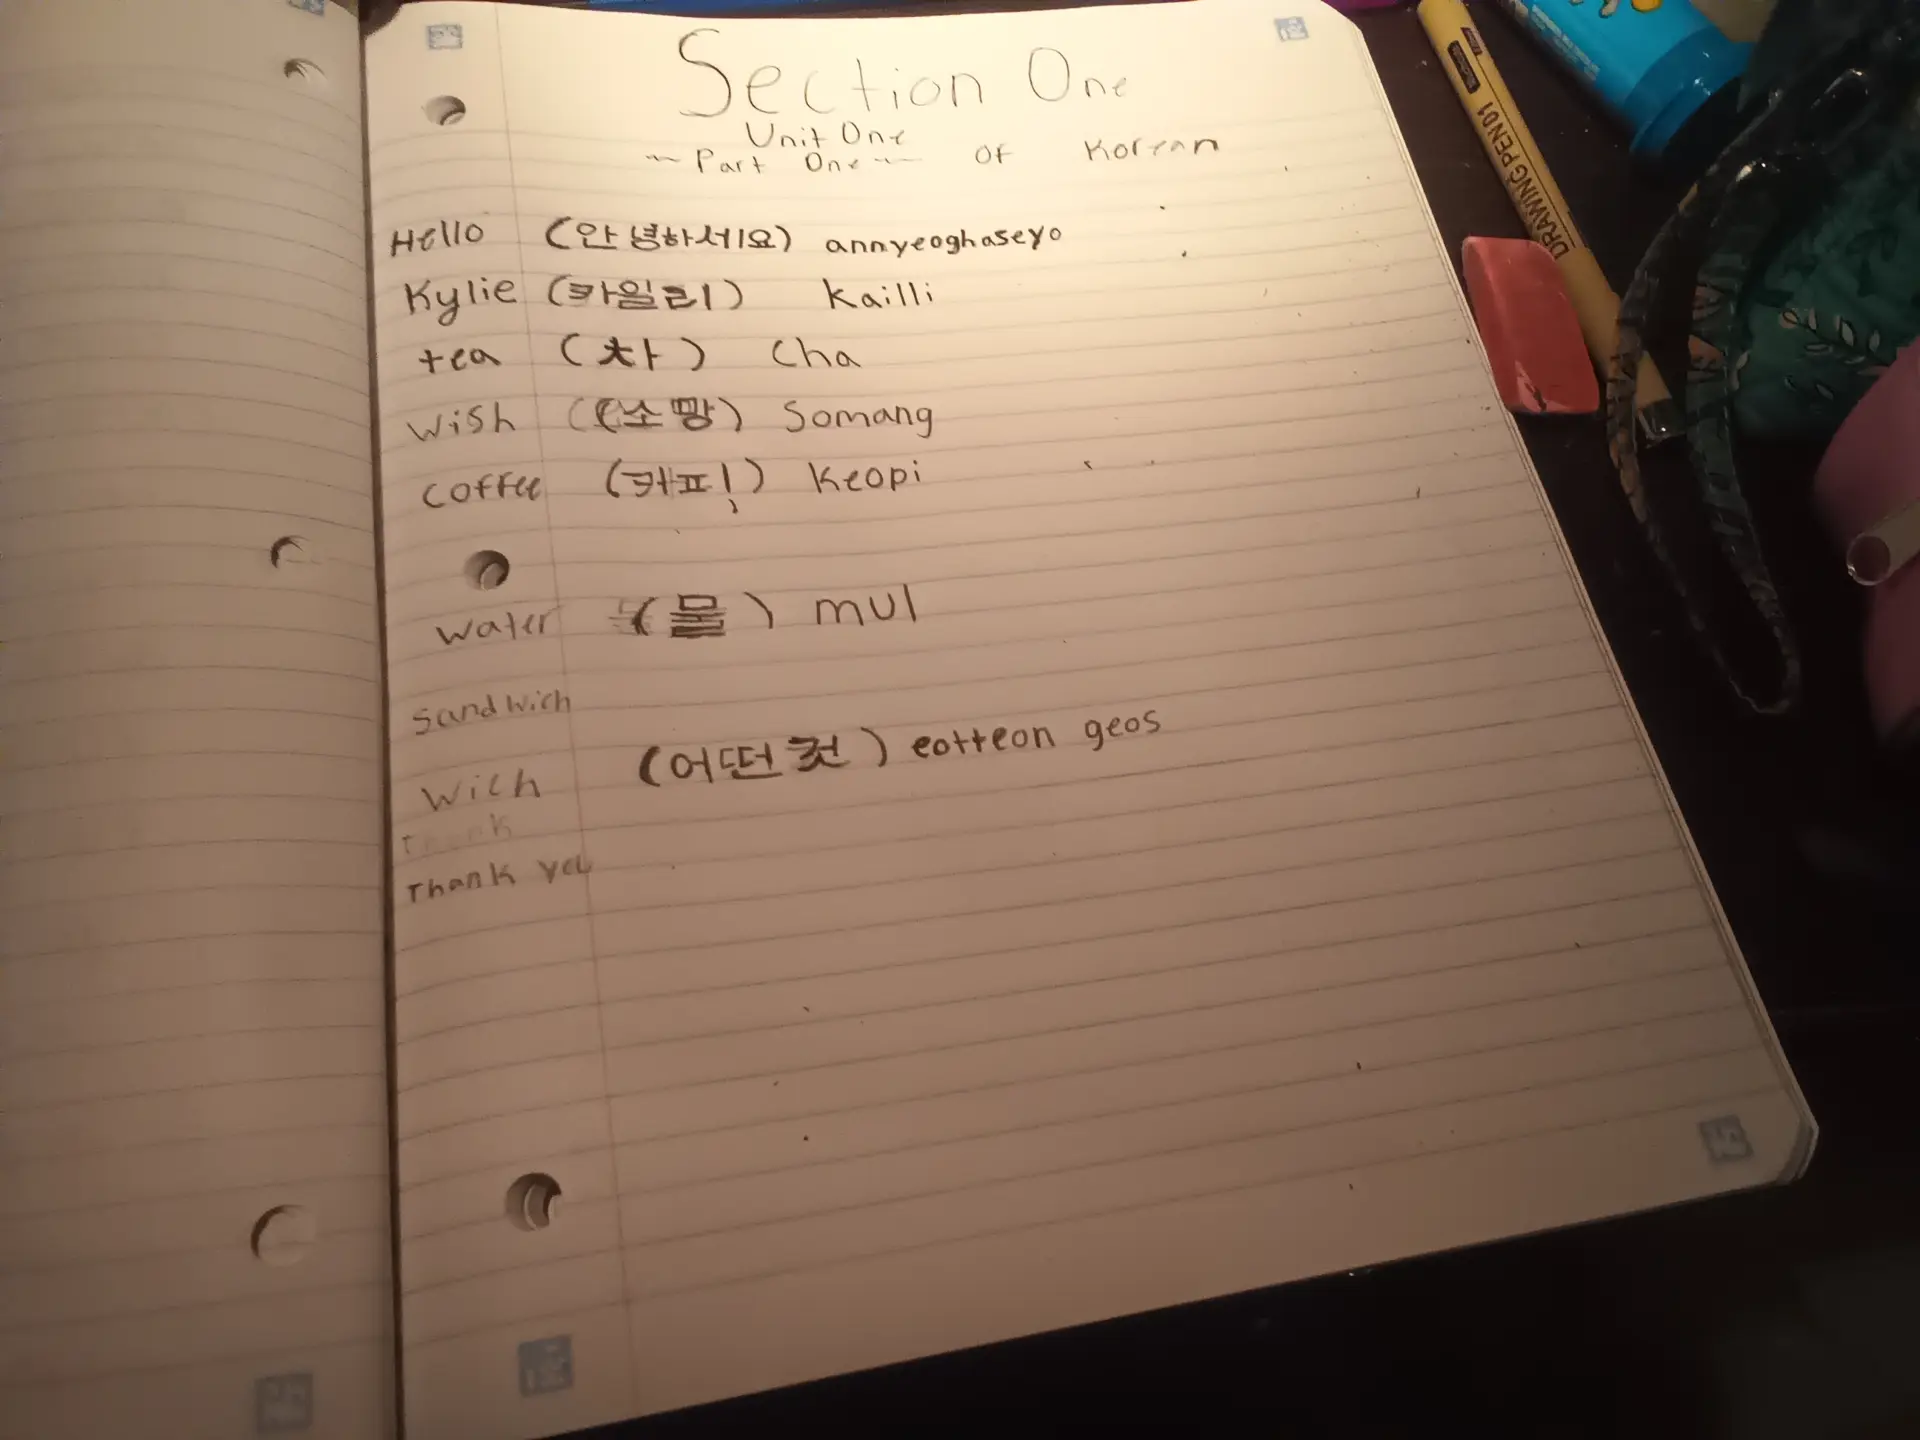 Section One
Unit One
~ Part One ~ of Korean
Hello (안녕하세요) annyeoghaseyo
Kylie (카일리) Kailli
tea (차) Cha
Wish (소망) Somang
Coffee (커피) Keopi
Water (물) mul
Sandwich
Wich (어떤 것) eotteon geos
Thank
Thank you
DRAWING PEN 01